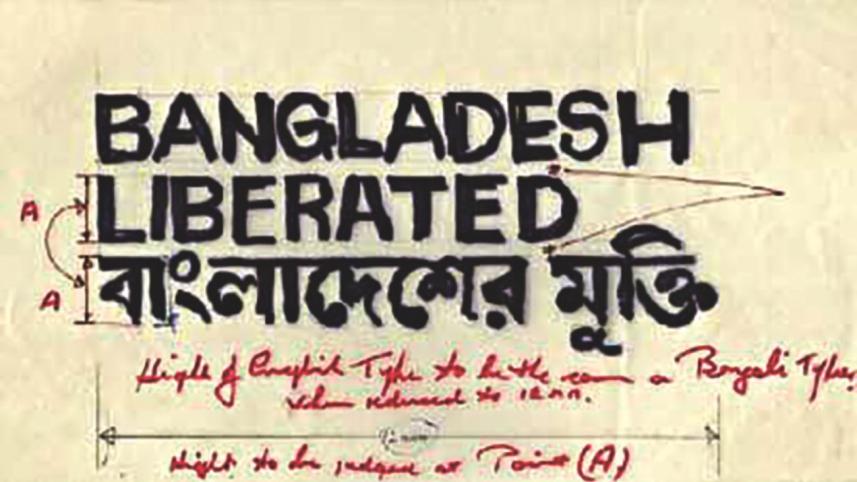 BANGLADESH
LIBERATED
A
A
বাংলাদেশের মুক্তি
Hight of English Type to be the same as Bengali Type,
when reduced to 12 mm.
Hight to be judged at Point (A)